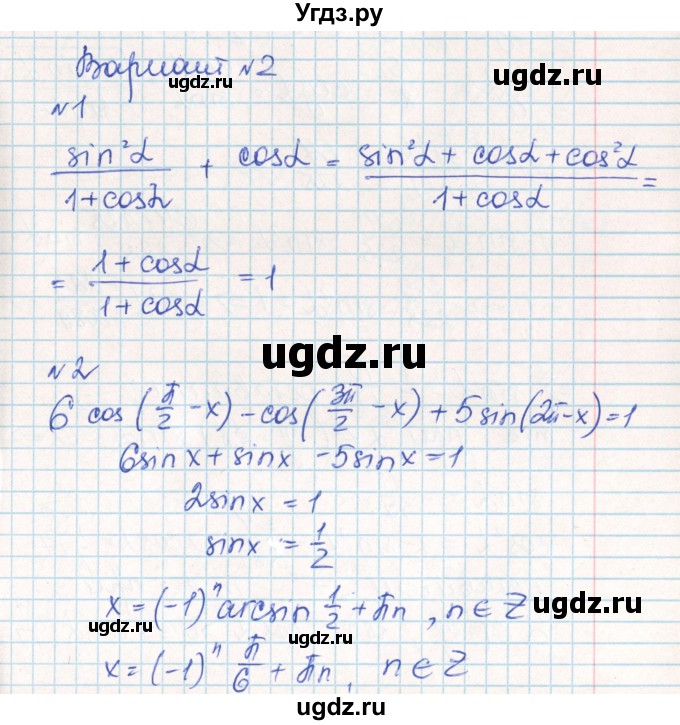 Угдз.ру
Вариант №2
ugdz.ru
ugdz.ru
№1
sin²α / 1+cosα + cosα = sin²α + cosα + cos²α / 1+cosα =
= 1+cosα / 1+cosα = 1
ugdz.ru
ugdz.ru
№2
6 cos(π/2 - x) - cos(3π/2 - x) + 5 sin(2π-x)=1
6sin x + sin x - 5sin x = 1
2sin x = 1
ugdz.ru
sin x = 1/2
x = (-1)ⁿ arcsin 1/2 + πn , n ∈ Z
ugdz.ru
ugdz.ru
ugdz.ru
x = (-1)ⁿ π/6 + πn, n ∈ Z
ugdz.ru
ugdz.ru